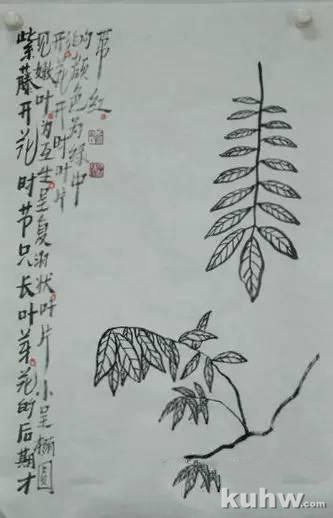 紫藤开花时节只长叶芽花的后期才
见嫩叶为互生呈复羽状叶片小呈椭圆
形花开时叶片
的颜色为绿中
带红
kuhw.com